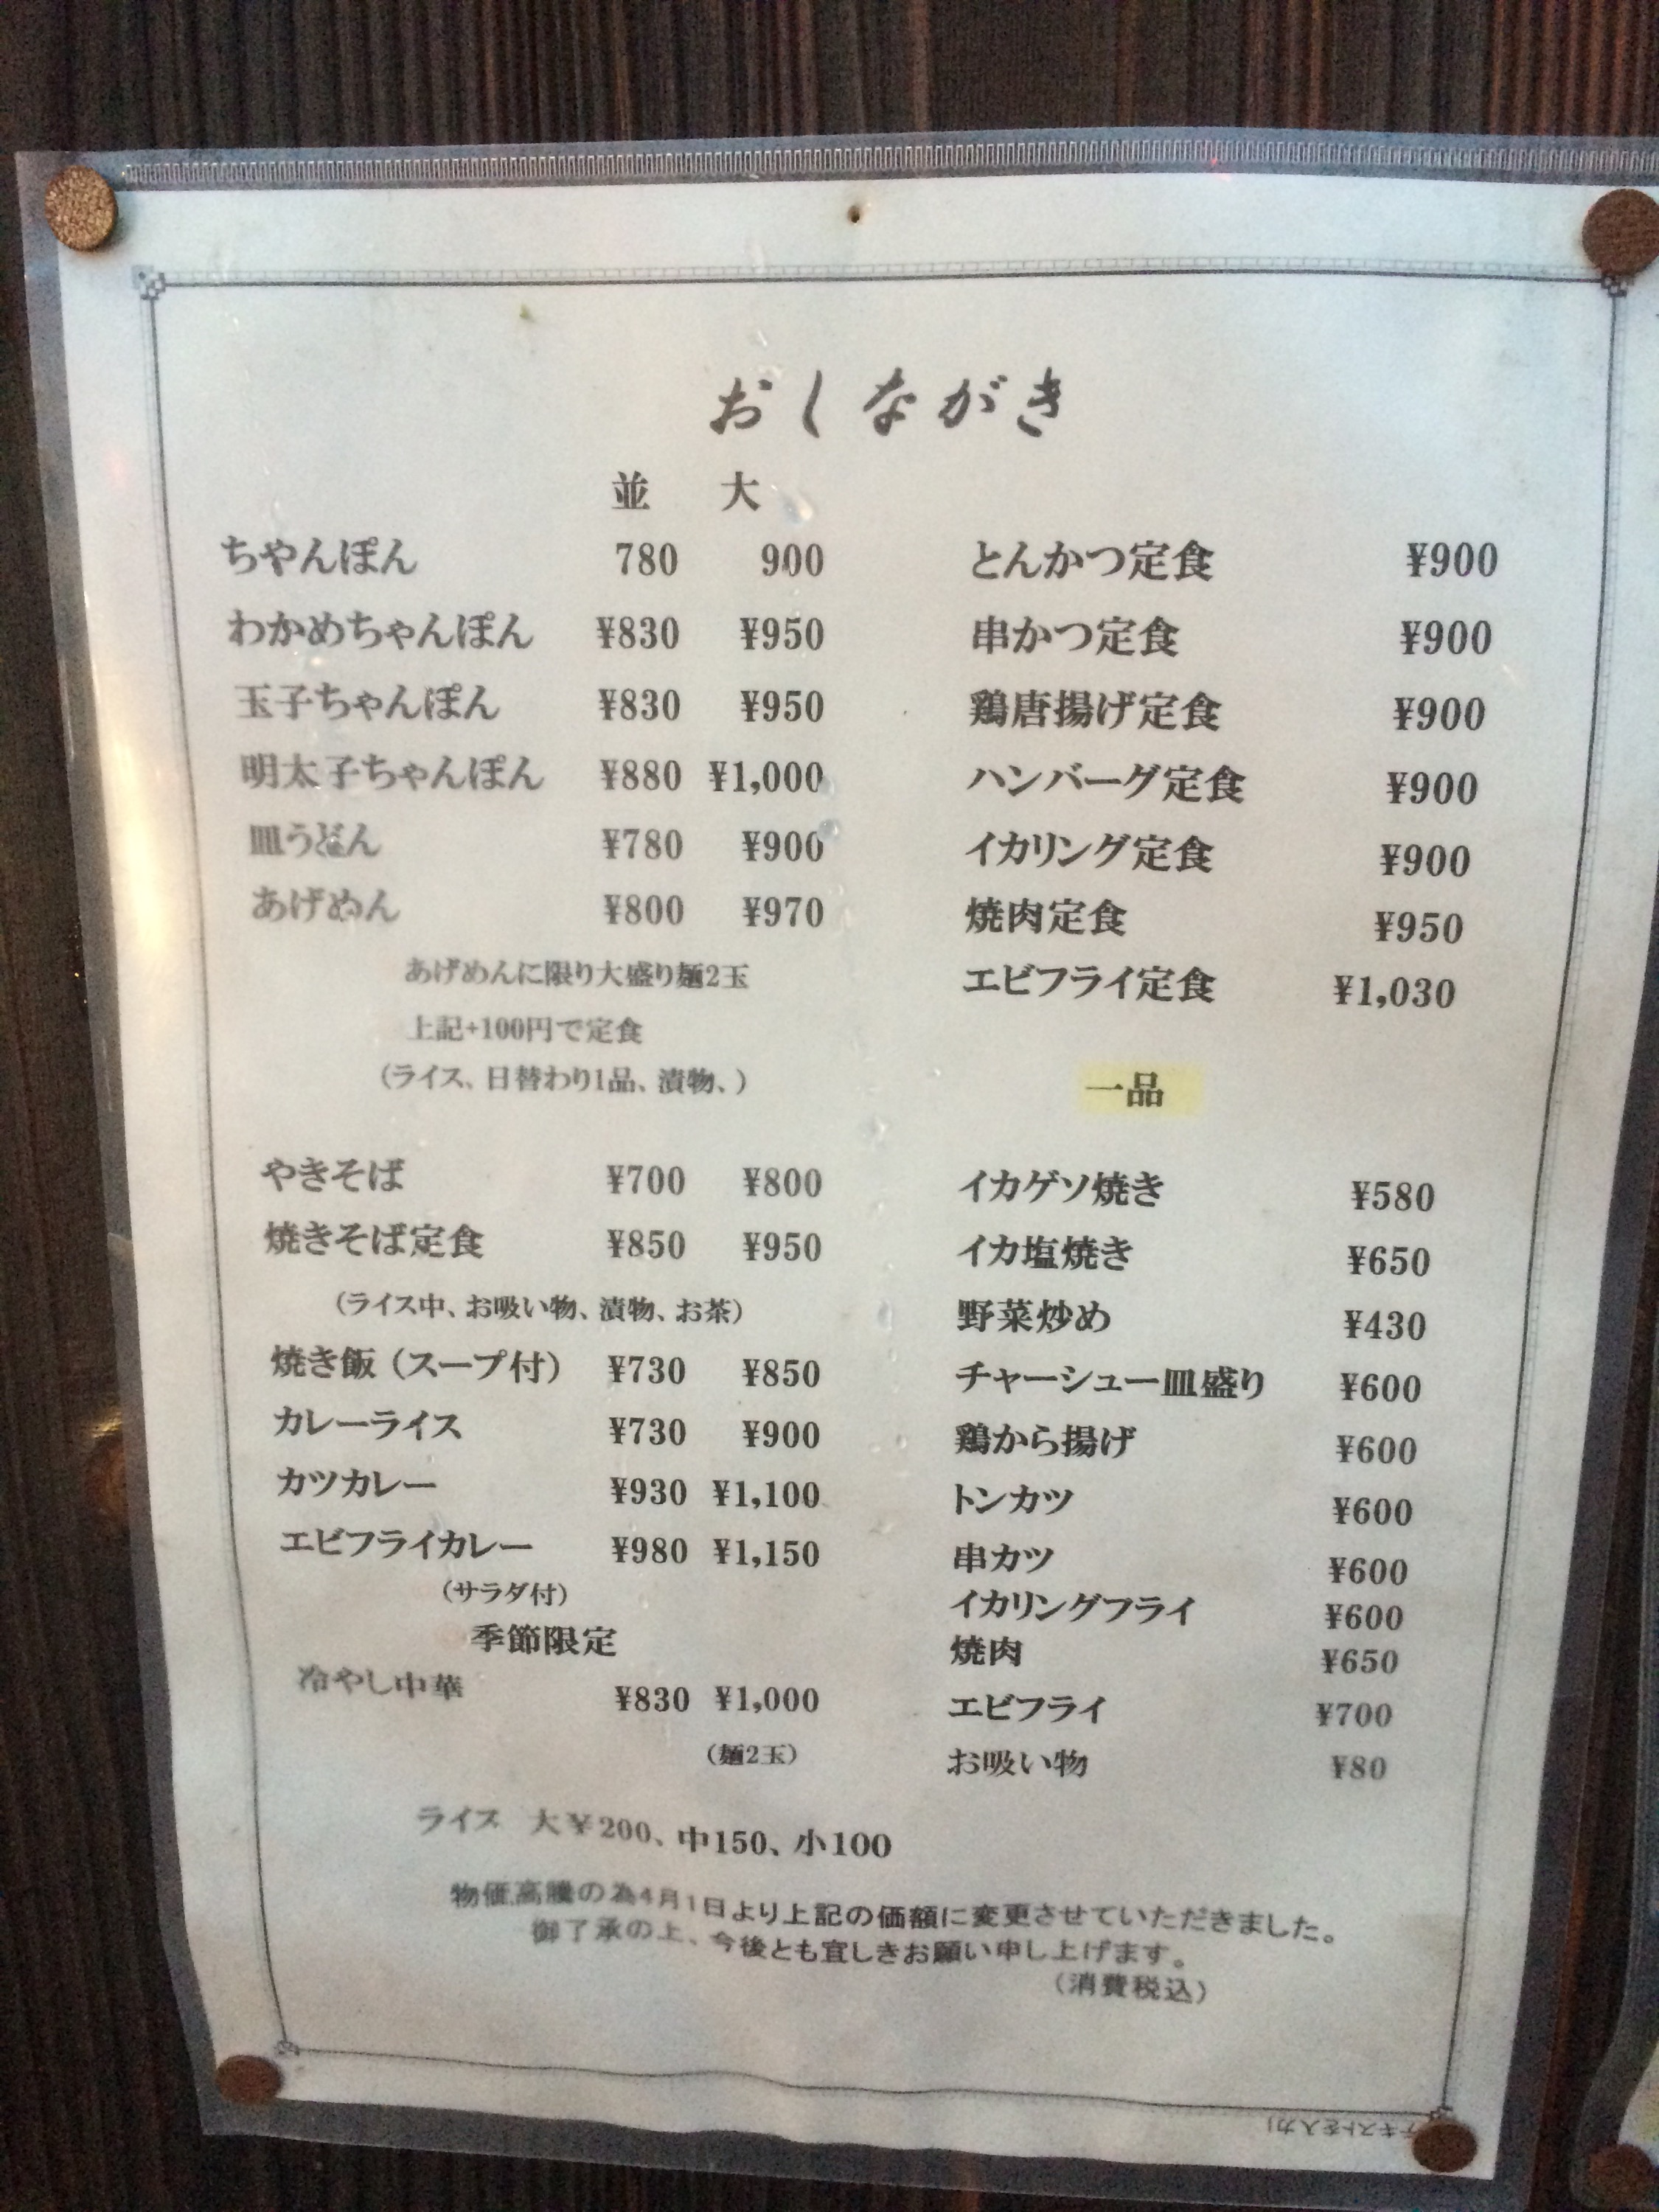 おしながき
並 大
ちやんぽん 780 900
わかめちゃんぽん ¥830 ¥950
玉子ちゃんぽん ¥830 ¥950
明太子ちゃんぽん ¥880 ¥1,000
皿うどん ¥780 ¥900
あげめん ¥800 ¥970
あげめんに限り大盛り麺2玉
上記+100円で定食
(ライス、日替わり1品、漬物、)
やきそば ¥700 ¥800
焼きそば定食 ¥850 ¥950
(ライス中、お吸い物、漬物、お茶)
焼き飯(スープ付) ¥730 ¥850
カレーライス ¥730 ¥900
カツカレー ¥930 ¥1,100
エビフライカレー ¥980 ¥1,150
(サラダ付)
季節限定
冷やし中華 ¥830 ¥1,000
(麺2玉)
とんかつ定食 ¥900
串かつ定食 ¥900
鶏唐揚げ定食 ¥900
ハンバーグ定食 ¥900
イカリング定食 ¥900
焼肉定食 ¥950
エビフライ定食 ¥1,030
一品
イカゲソ焼き ¥580
イカ塩焼き ¥650
野菜炒め ¥430
チャーシュー皿盛り ¥600
鶏から揚げ ¥600
トンカツ ¥600
串カツ ¥600
イカリングフライ ¥600
焼肉 ¥650
エビフライ ¥700
お吸い物 ¥80
ライス 大¥200、中150、小100
物価高騰の為4月1日より上記の価額に変更させていただきました。
御了承の上、今後とも宜しきお願い申し上げます。
(消費税込)
テキストを入力]